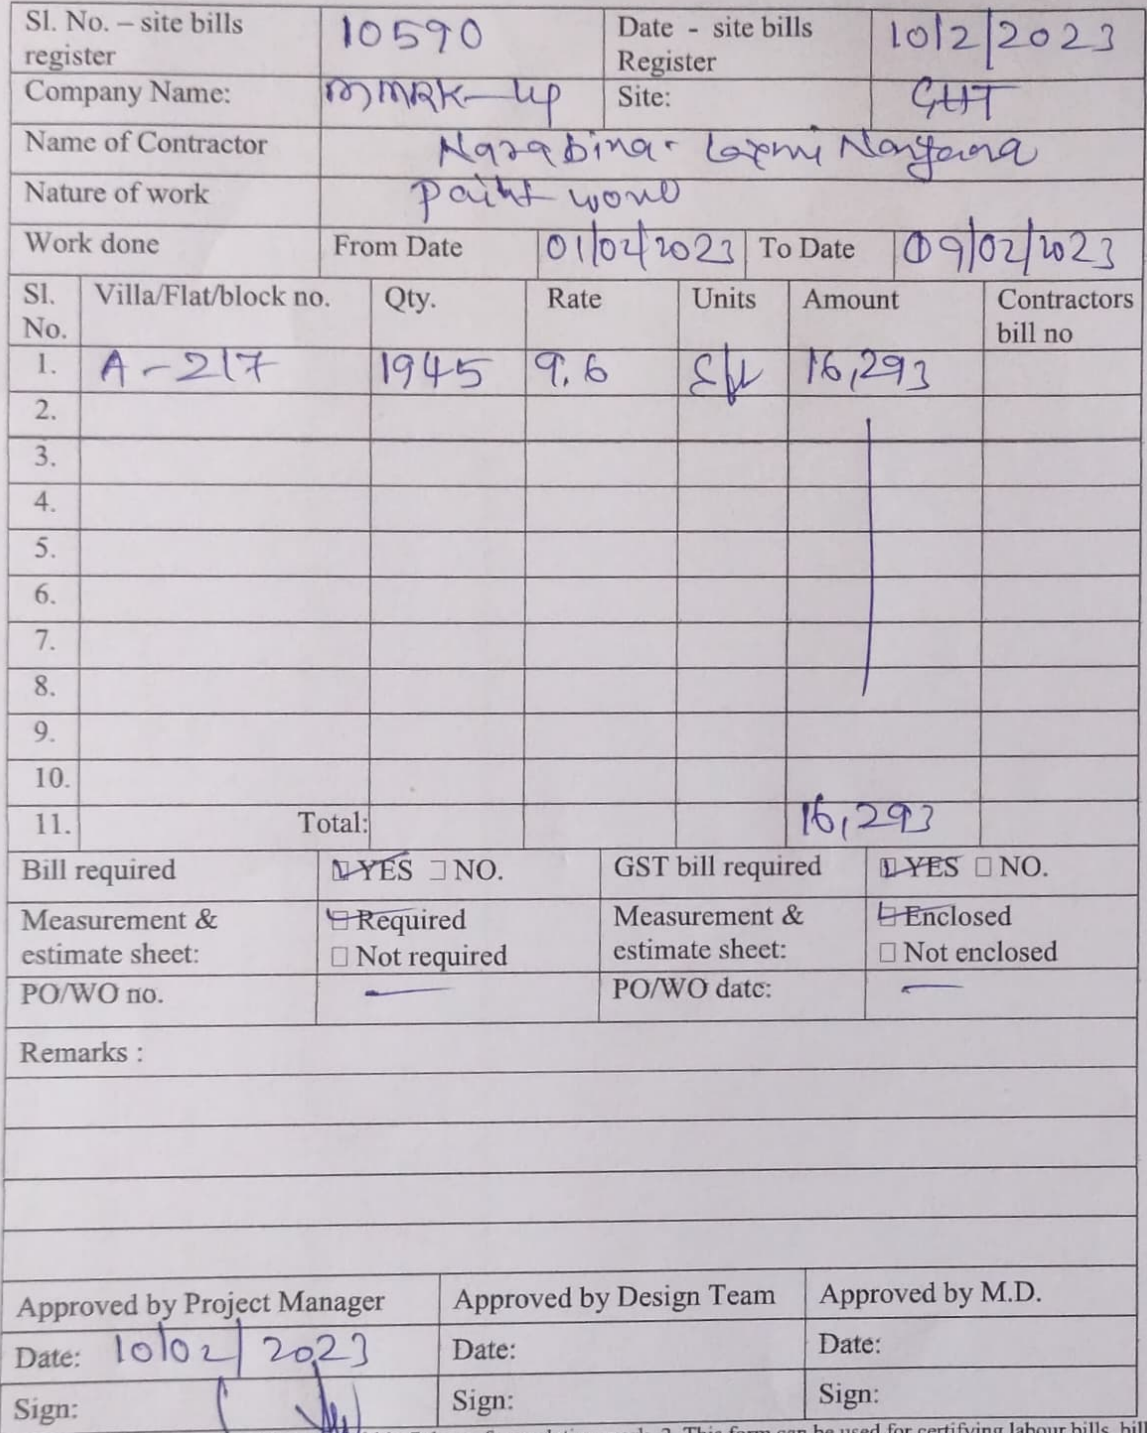 Sl. No. – site bills register 10590 Date - site bills Register 10/2/2023
Company Name: MMRK-llp Site: GHT
Name of Contractor Narabina. Laxmi Narayana
Nature of work Paint work
Work done From Date 01/02/2023 To Date 09/02/2023
Sl. No. Villa/Flat/block no. Qty. Rate Units Amount Contractors bill no
1. A-217 1945 9.6 Sft 16,293
2.
3.
4.
5.
6.
7.
8.
9.
10.
11. Total: 16,293
Bill required ☑ YES ☐ NO. GST bill required ☑ YES ☐ NO.
Measurement & estimate sheet: ☑ Required ☐ Not required Measurement & estimate sheet: ☑ Enclosed ☐ Not enclosed
PO/WO no. — PO/WO date: —
Remarks :
Approved by Project Manager Approved by Design Team Approved by M.D.
Date: 10/02/2023 Date: Date:
Sign: Sign: Sign:
This form can be used for certifying labour bills, bill